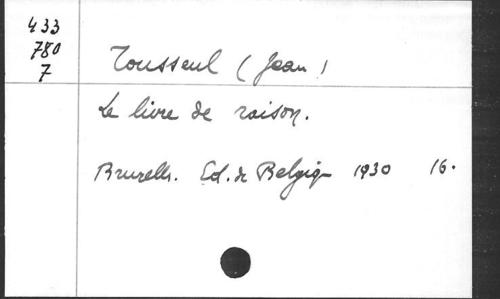 433
780
7
Tousseul (Jean)
Le livre de raison.
Bruxelles. Ed. de Belgique 1930 16.